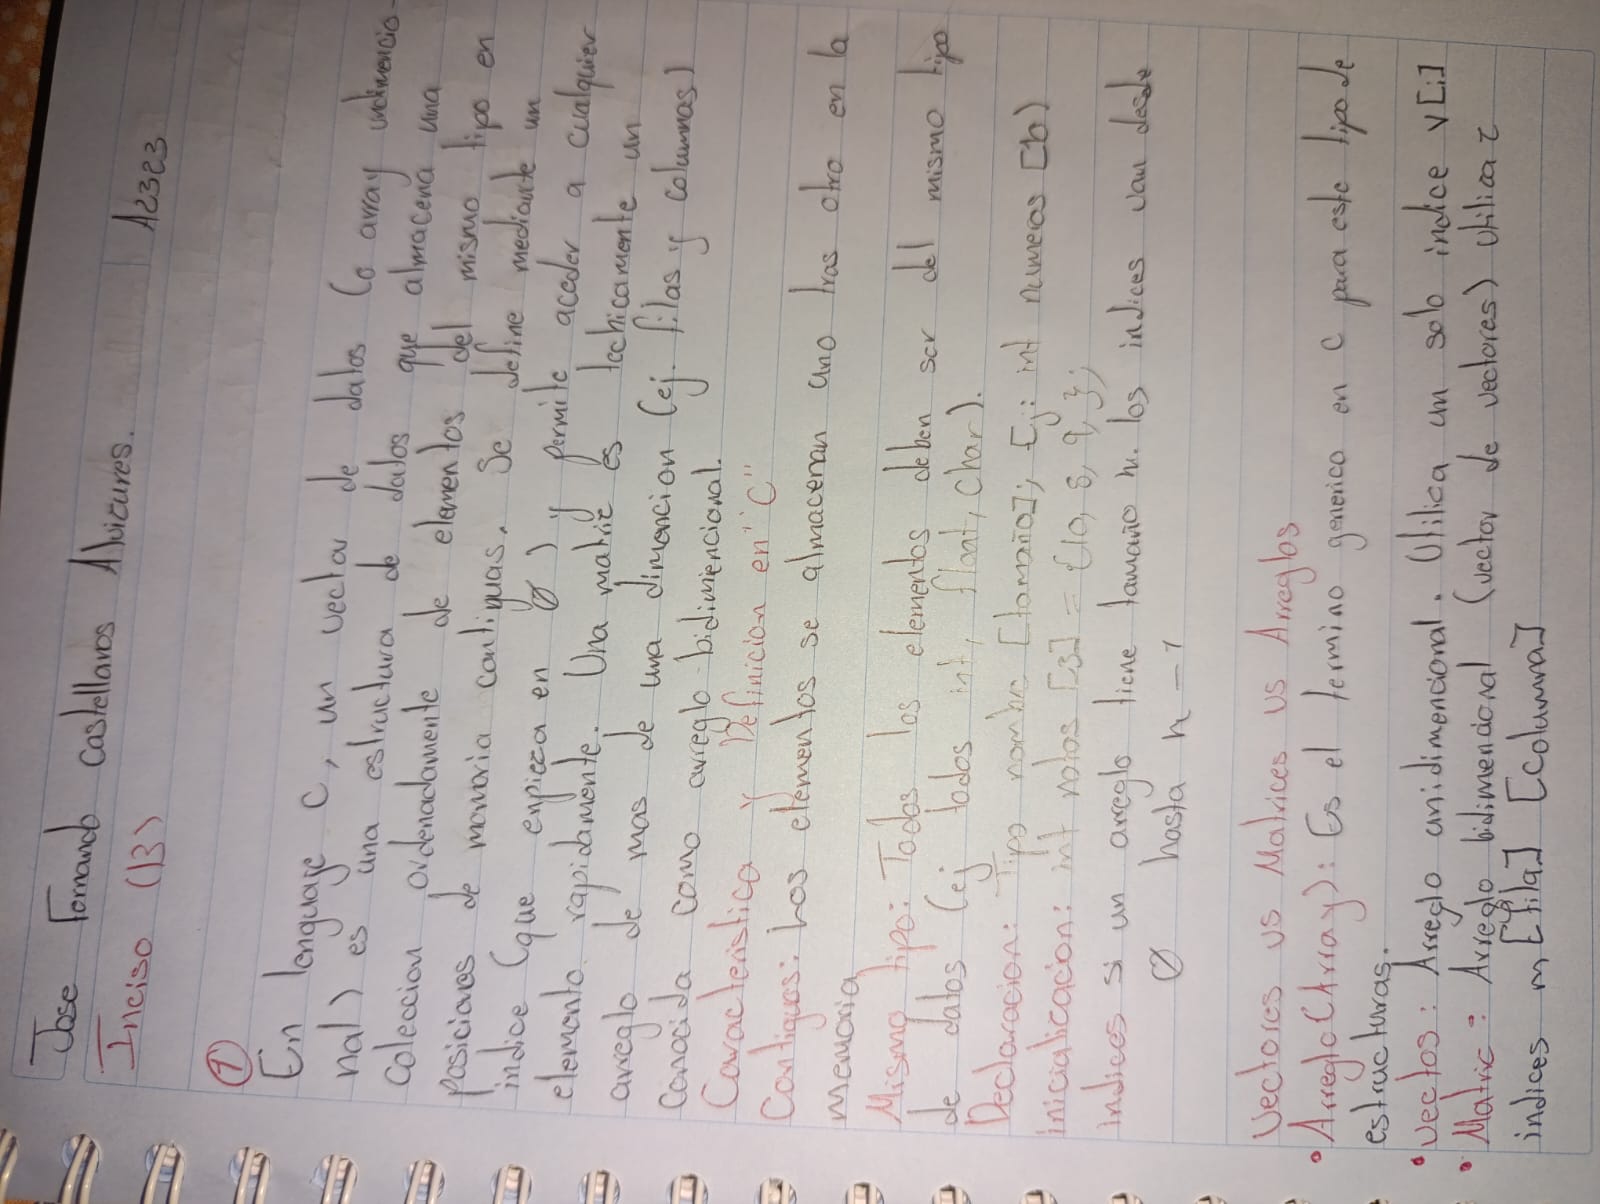 Jose Fernando castellanos Alvizures.
Inciso (B) A2323
①
En lenguaje C, un vector de datos (o array unidimencio-
nal) es una estructura de datos que almacena una
coleccion ordenadamente de elementos del mismo tipo en
posiciones de memoria contiguas. Se define mediante un
indice (que enpieza en 0) y permite acceder a cualquier
elemento rapidamente. Una matriz es technicamente un
arreglo de mas de una dimencion (ej. filas y columnas)
conocida como arreglo bidimiencional.
Caracteristica y Definicion en "C"
Contiguos: Los elementos se almacenan uno tras otro en la
memoria
Mismo tipo: Todos los elementos deben ser del mismo tipo
de datos (ej todos int, float, char).
Declaracion: Tipo nombre [tamaño]; Ej: int numeos [b)
inicializacion: int notas [3] = {10, 8, 9,};
indices si un areglo tiene tamaño n. los indices van desde
0 hasta n-1
Vectores vs Matrices vs Arreglos
• Arreglo (Array): Es el termino generico en C para este tipo de
estructuras.
• vectos: Arreglo unidimencional. Utiliza un solo indice v[i]
• Matriz: Arreglo bidimencional (vector de vectores) utiliza 2
indices m [fila] [columna]